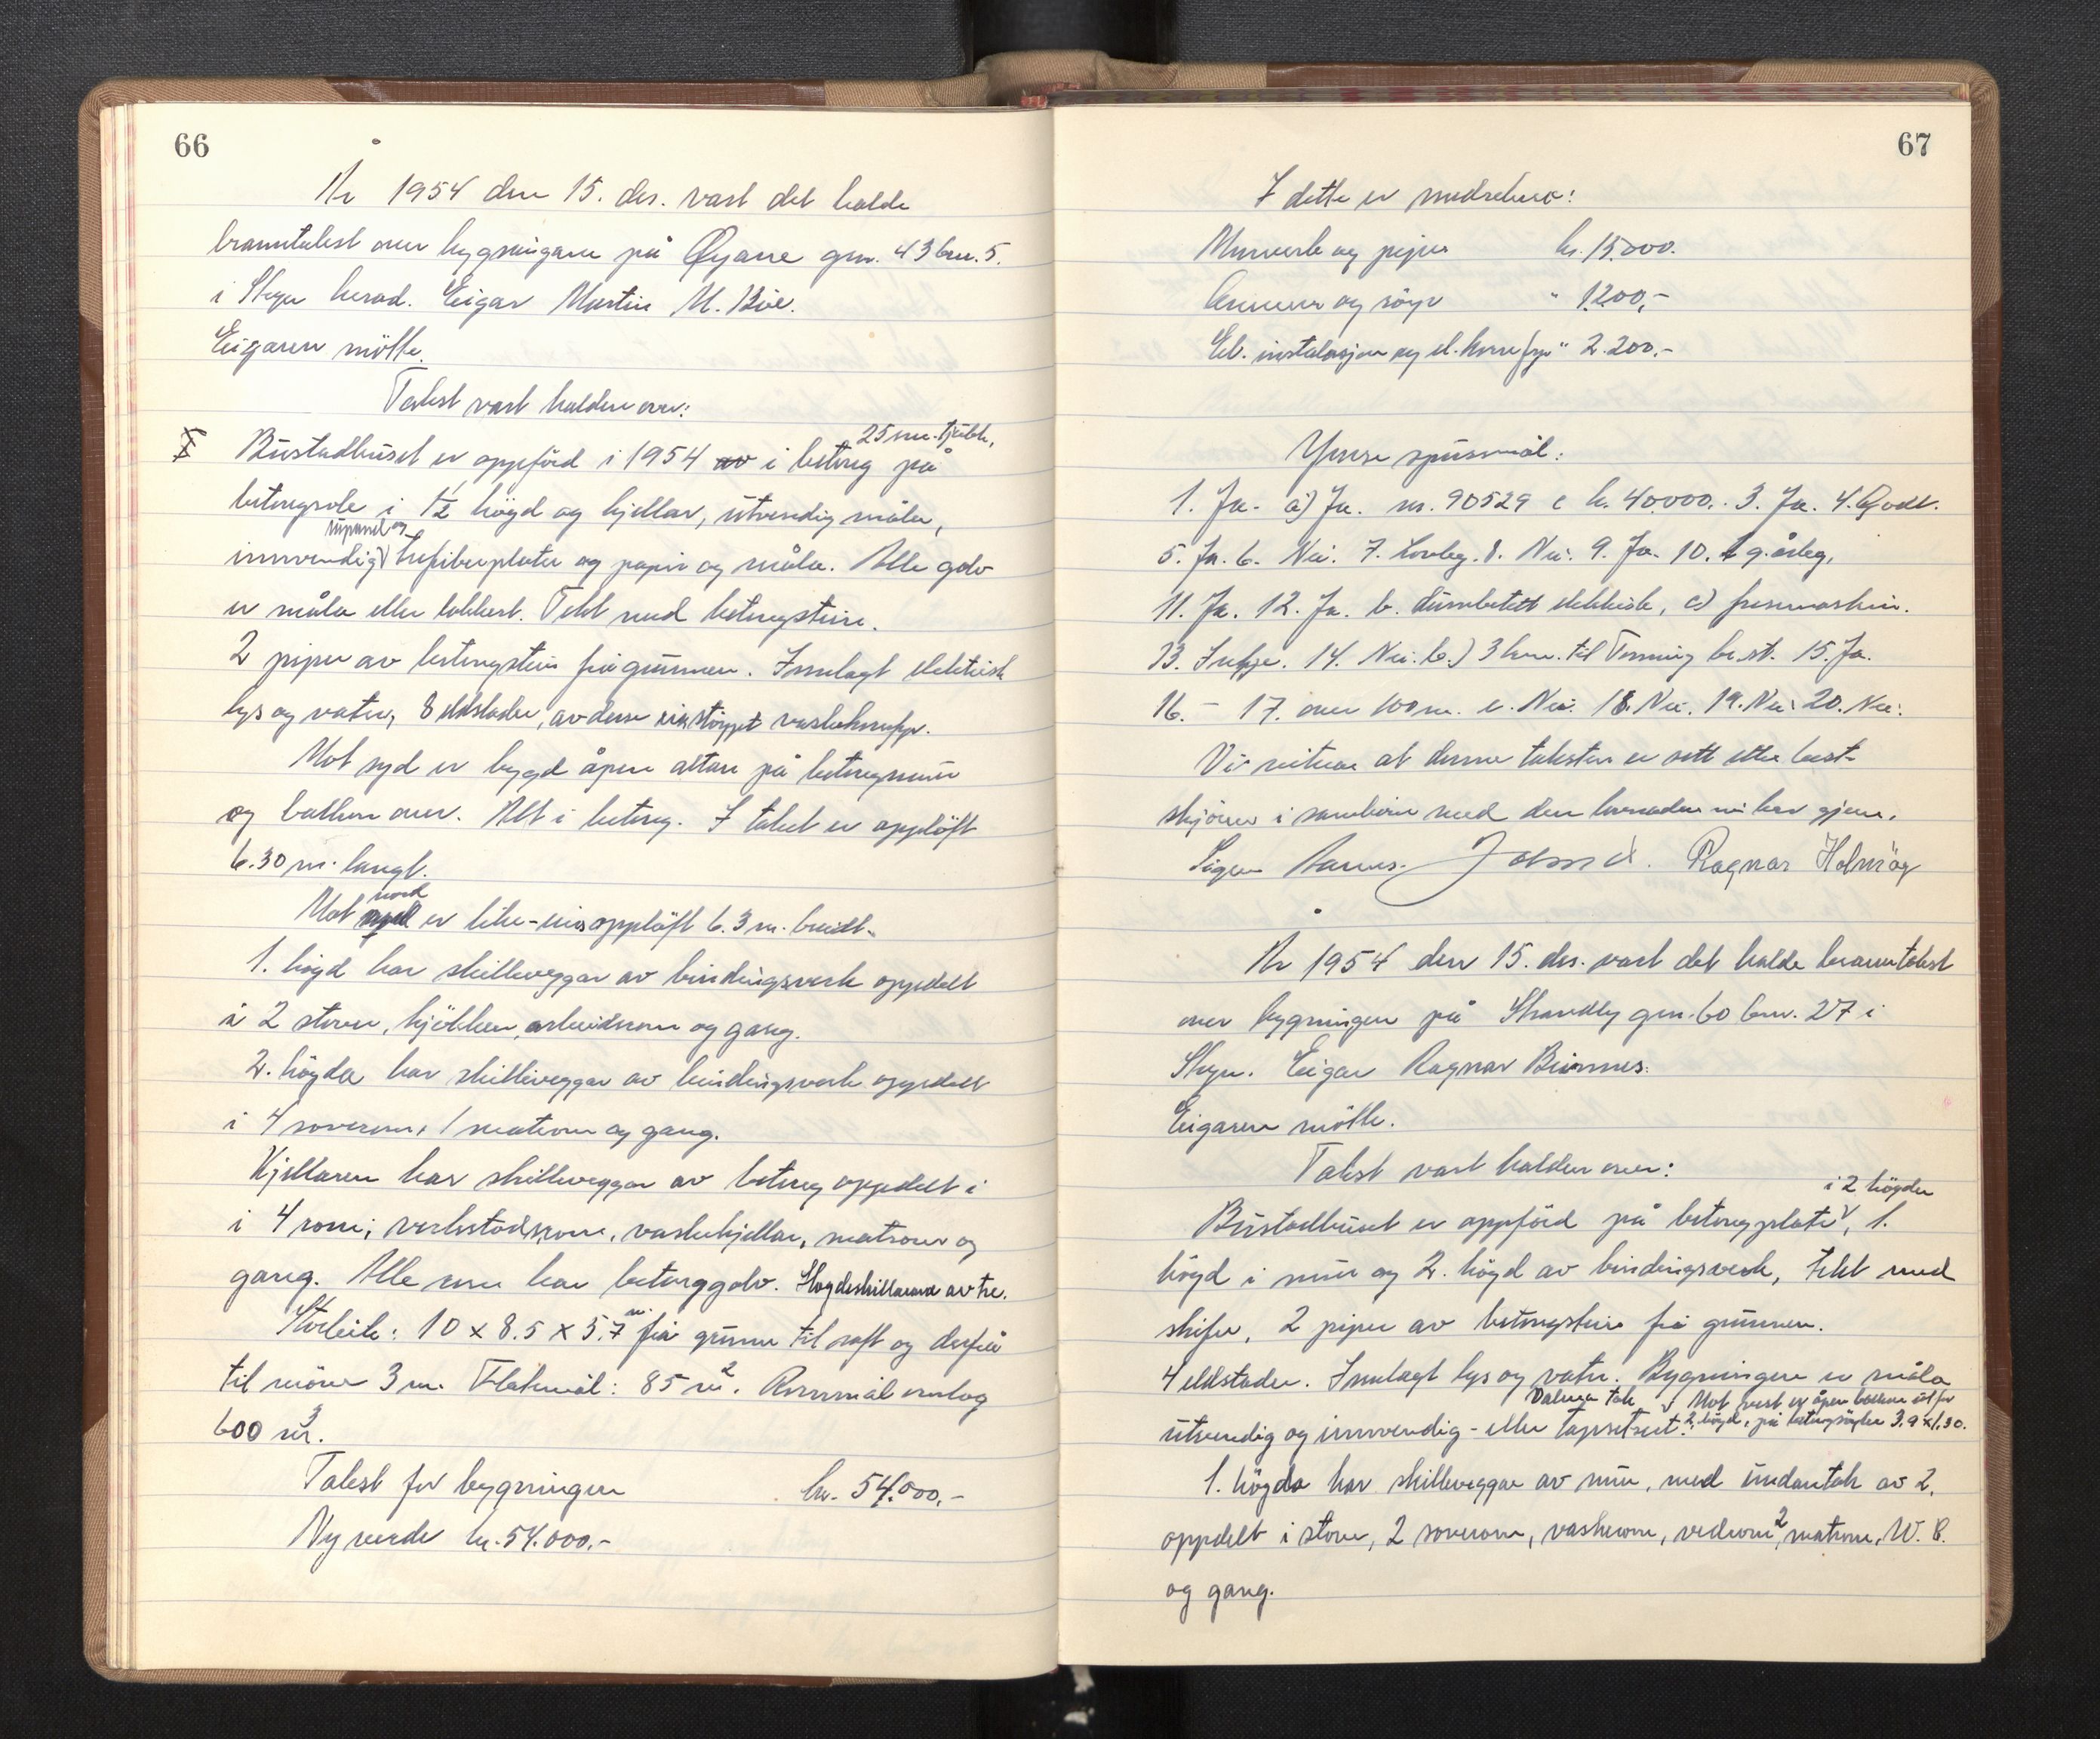 66
År 1954 den 15. des. vart det halde
branntakst over bygningane på Øyane gnr. 43 bnr. 5.
i Skyn herad. Eigar Martin M. Bøe.
Eigaren møtte.
Takst vart halden over:
I Bustadhuset er oppförd i 1954 av i betong 25 cm. tjukk, på
betongsole i 1½ högd og kjellar, utvendig måla,
innvendig rupanel og trefiberplater og papir og måla. Alle golv
er måla eller lakkert. Tekt med betongstein.
2 piper av betongstein frå grunnen. Innlagt elektrisk
lys og vatn, 8 eldstader, av desse ein støypt vaskekum.
Mot syd er bygd åpen altan på betongmur
og balkon over. Alt i betong. I taket er opplöft
6.30 m. langt.
Mot nord er like-eins opplöft 6.3 m. breidt.
1. högd har skilleveggar av bindingsverk oppdelt
i 2 stover, kjökken, arbeidsrom og gang.
2. högda har skilleveggar av bindingsverk oppdelt
i 4 soverom, 1 matrom og gang.
Kjellaren har skilleveggar av betong oppdelt i
i 4 rom; verkstadsrom, vaskekjellar, matrom og
gang. Alle rom har betonggolv. Högdeskillarane av tre.
Storleik: 10 x 8.5 x 5.7 m. frå grunn til raft og derfrå
til möne 3 m. Flatemål: 85 m². Rommål omlag
600 m³.
Takst for bygningen kr. 54.000,-
Ny verde kr. 54.000,-
67
I dette er medrekna:
Murverk og piper kr. 15.000.
Omnar og röyr " 1200,-
El. instalasjon og el. komfyr " 2.200,-
Ymse spursmål:
1. Ja. a) Ja. nr. 90529 c kr. 40.000.. 3. Ja. 4. Godt.
5. Ja. 6. Nei. 7. Loveleg. 8. Nei. 9. Ja. 10. 1 g. årleg.
11. Ja. 12. Ja. b. Dusinbetett elektrisk, c) fresemaskin.
13. Inkje. 14. Nei. b.) 3 km. til Tenning br.st. 15. Ja.
16. - 17. over 100 m. c. Nei. 18. Nei. 19. Nei 20. Nei.
Vi vitnar at denne taksten er sett etter beste
skjönn i samhöve med den lovnaden vi har gjeve.
Ragnar Holmöy
År 1954 den 15. des. vart det halde branntakst
over bygningen på Strandby gnr. 60 bnr. 27 i
Skyn. Eigar Ragnar Bönnes.
Eigaren møtte.
Takst vart halden over:
Bustadhuset er oppförd på betongplate i 2 högder, 1.
högd i mur og 2. högd av bindingsverk, tekt med
skifer, 2 piper av betongstein frå grunnen.
4 eldstader. Innlagt lys og vatn. Bygningen er måla
utvendig og innvendig - eller tapetsert. Valma tak Mot vest er åpen balkon ut for 2. högd, på betongsöyler 3.9 x 1.30.
1. högda har skilleveggar av mur, med undantak av 2,
oppdelt i stove, 2 soverom, vaskerom, vedrom, 2 matrom, W.C.
og gang.